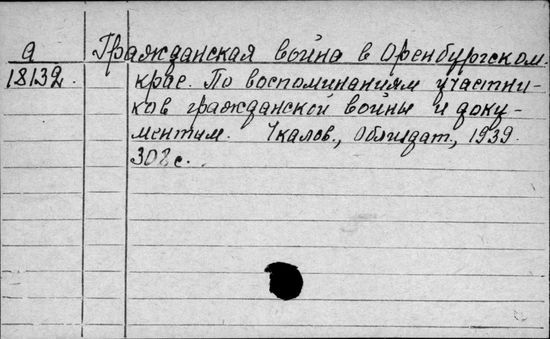 а Гражданская война в Оренбургском
18132. крае. По воспоминаниям участни-
ков гражданской войны и доку-
ментам. Чкалов, Облиздат, 1939.
308 с.